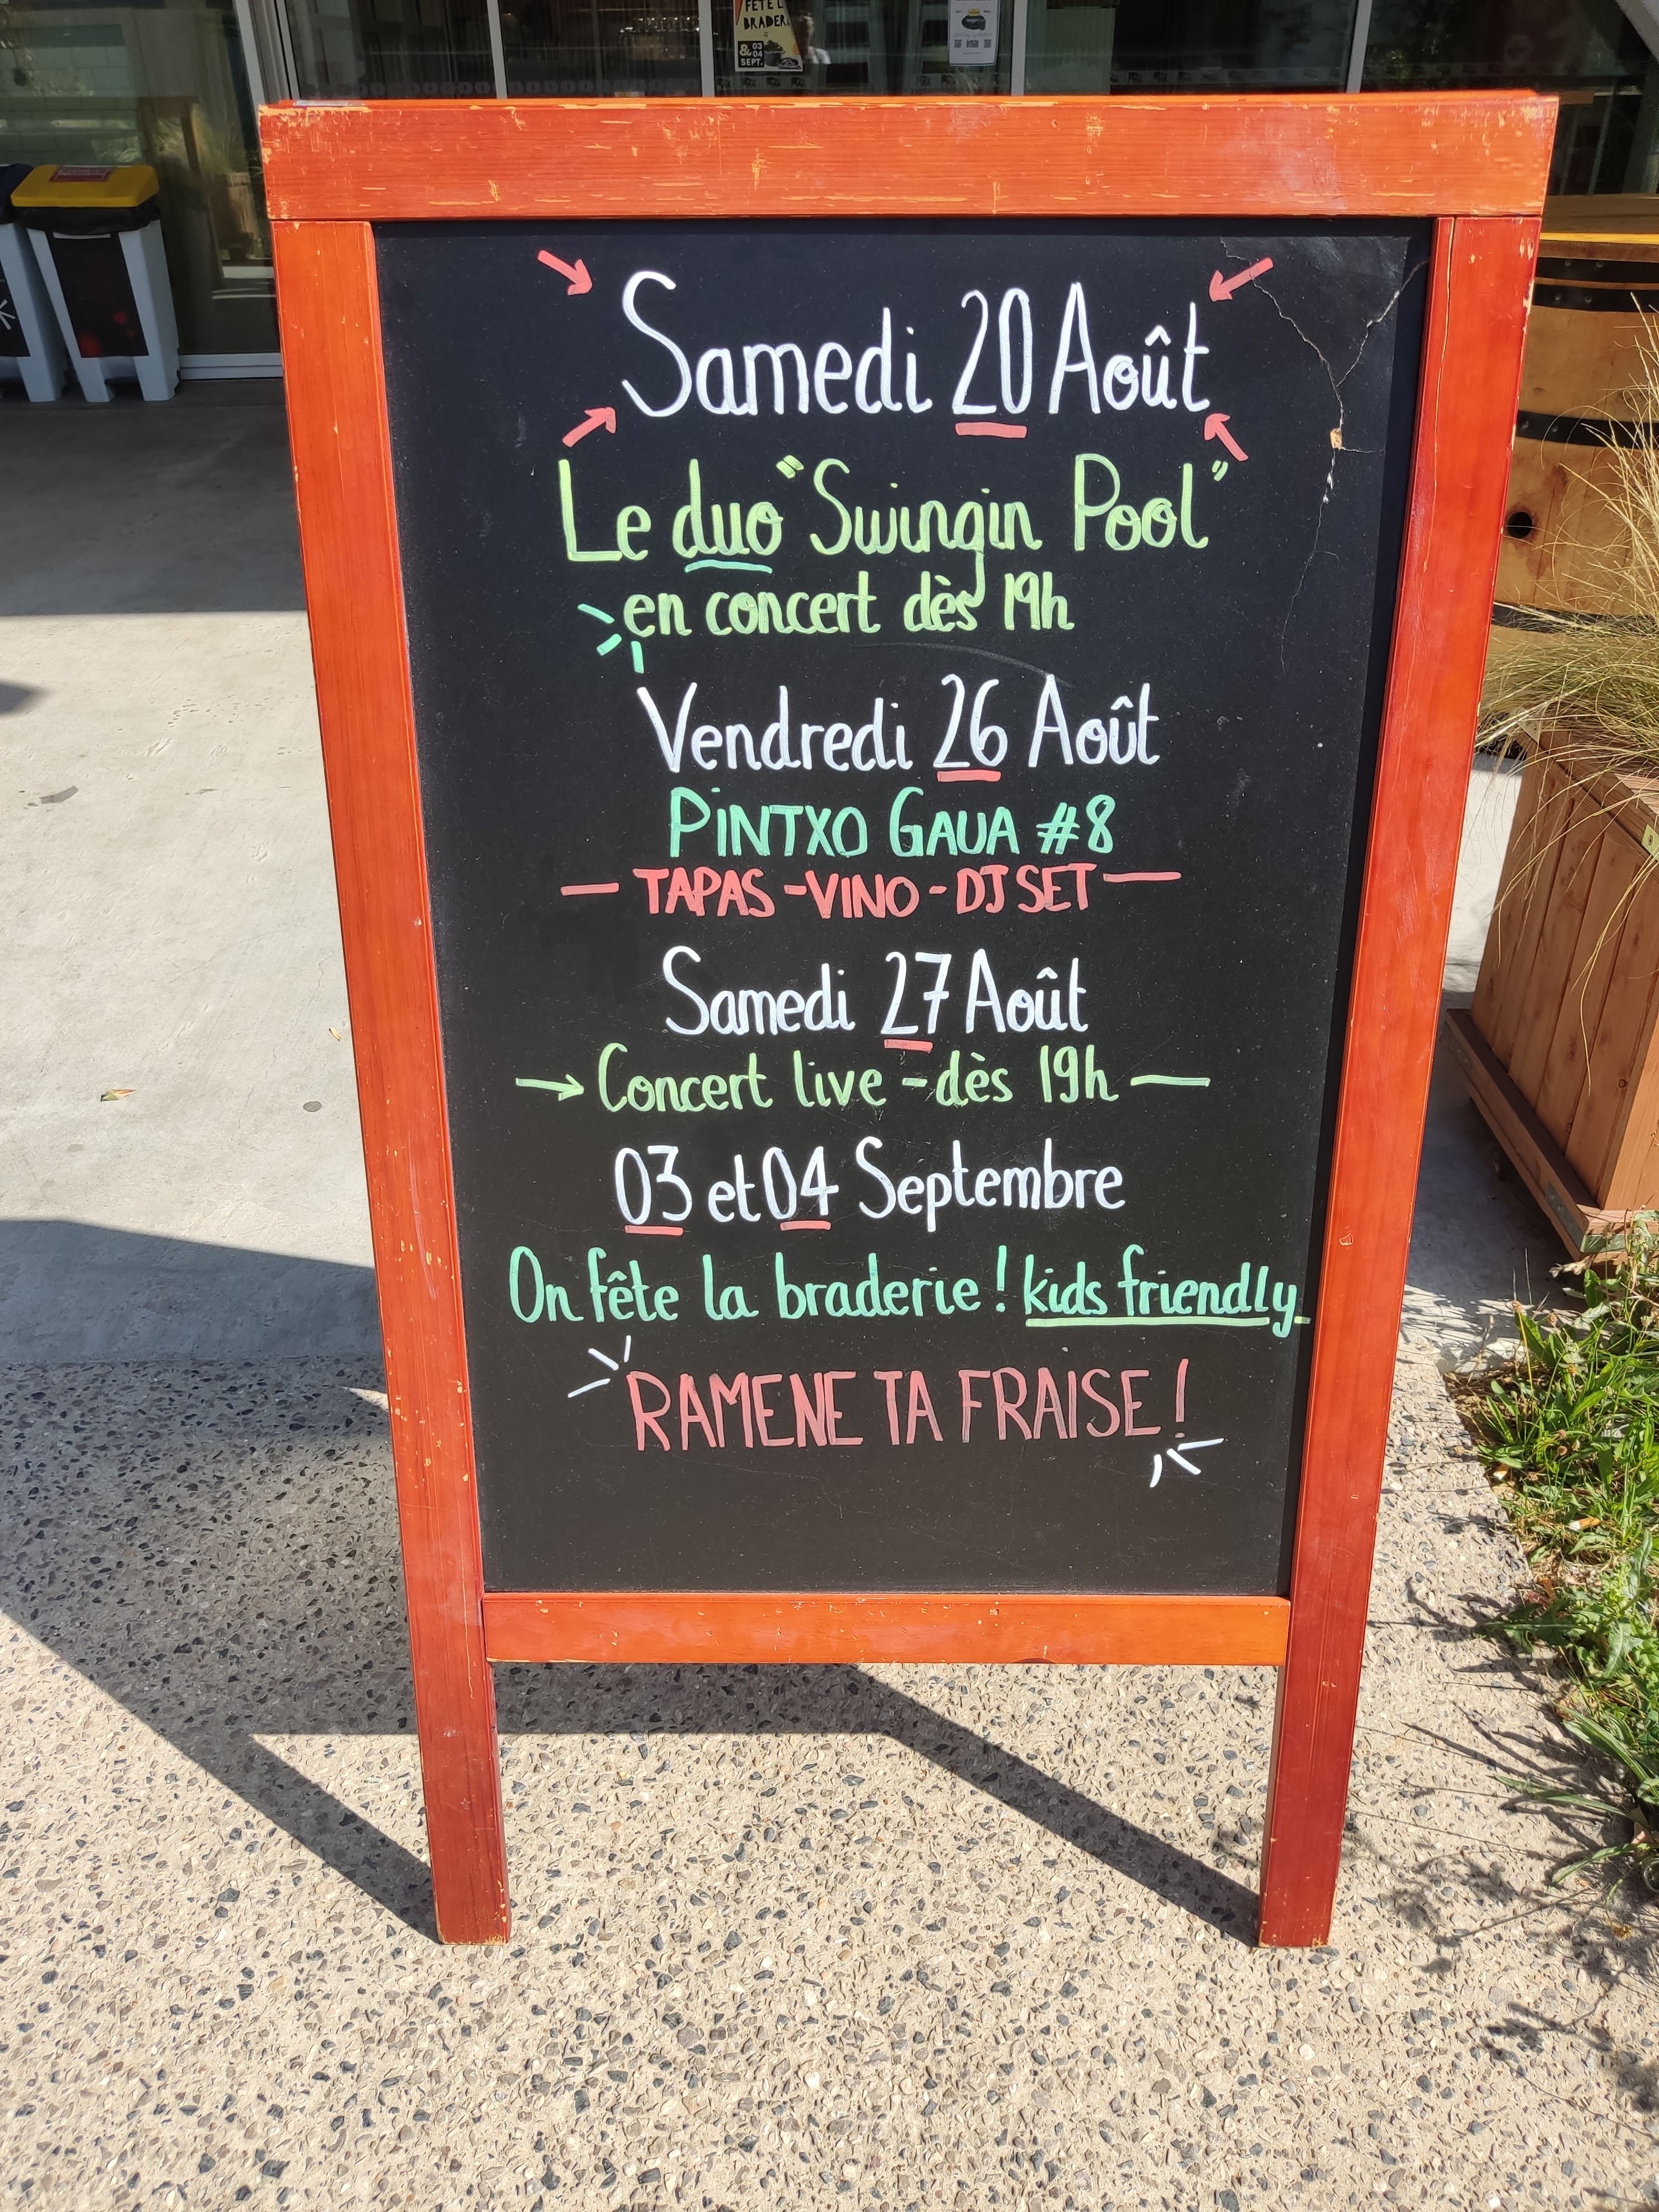 FÊTE L
BRADER
&
03
04
SEPT.
Samedi 20 Août
Le duo "Swingin Pool"
en concert dès 19h
Vendredi 26 Août
PiNTXO GAUA #8
— TAPAS - VINO - DJ SET —
Samedi 27 Août
→ Concert live - dès 19h —
03 et 04 Septembre
On fête la braderie ! kids friendly
RAMENE TA FRAISE !